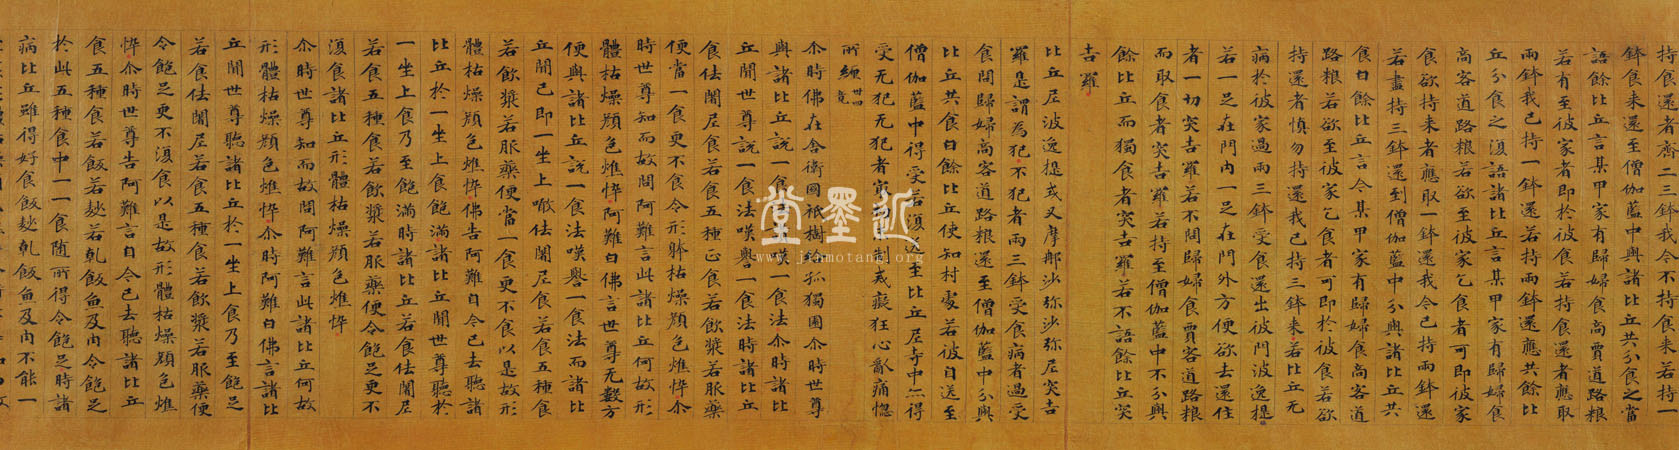 持食還者齋二三鉢我今不持食来若持一
鉢食来還至僧伽藍中與諸比丘共分食之當
語餘比丘言某甲家有歸婦食高賈道路粮
若有至彼家者即於彼家食若持食還者應取
兩鉢我已持一鉢還若持兩鉢還應共餘比
丘分食之復語諸比丘言某甲家有歸婦食
高客道路粮若欲至彼家乞食者可即彼家
食欲持来者應取一鉢還我今已持兩鉢還
若盡持三鉢還到僧伽藍中分與諸比丘共
食白餘比丘言今某甲家有歸婦食高客道
路粮若欲至彼家乞食者可即於彼食若欲
持還者慎勿持還我已持三鉢来若比丘无
病於彼家過兩三鉢受食還出彼門波逸提
若一足在門內一足在門外方便欲去還住
者一切突吉羅若不問歸婦食賈客道路粮
而取食者突吉羅若持至僧伽藍中不分與
餘比丘而獨食者突吉羅若不語餘比丘突
吉羅
比丘尼波逸提或叉摩那沙弥沙弥尼突吉
羅是謂為犯不犯者兩三鉢受食病者過受
食問歸婦高客道路粮還至僧伽藍中分與
比丘共食白餘比丘使知村處若彼自送至
僧伽藍中得受若復送至比丘尼寺中亦得
受无犯无犯者㝡初制戒癡狂心亂痛惱
所纏 卅四竟
尒時佛在舍衛國祇樹孤獨園尒時世尊
與諸比丘說一食法一食法尒時諸比
丘聞世尊說一食法嘆譽一食法時諸比丘
食佉闍尼食若食五種正食若飲漿若服藥
便當一食更不食令形躰枯燥顏色燋悴尒
時世尊知而故問阿難言此諸比丘何故形
體枯燥顏色燋悴阿難白佛言世尊无數方
便與諸比丘說一食法嘆譽一食法而諸比
丘聞已即一坐上噉佉闍尼食若食五種食
若飲漿若服藥便當一食更不食以是故形
體枯燥顏色燋悴佛告阿難自今已去聽諸
比丘於一坐上食飽滿諸比丘聞世尊聽於
一坐上食乃至飽滿時諸比丘若食佉闍尼
若食五種食若飲漿若服藥便令飽足更不
復食諸比丘形體枯燥顏色燋悴
尒時世尊知而故問阿難言此諸比丘何故
形體枯燥顏色燋悴尒時阿難白佛言諸比
丘聞世尊聽諸比丘於一坐上食乃至飽足
若食佉闍尼若食五種食若飲漿若服藥便
令飽足更不復食以是故形體枯燥顏色燋
悴尒時世尊告阿難言自今已去聽諸比丘
食五種食若飯若麨若乹飯魚及肉令飽足
於此五種食中一一食随所得令飽足時諸
病比丘雖得好食飯麨乹飯魚及肉不能一
近墨堂
www.jinmotang.org